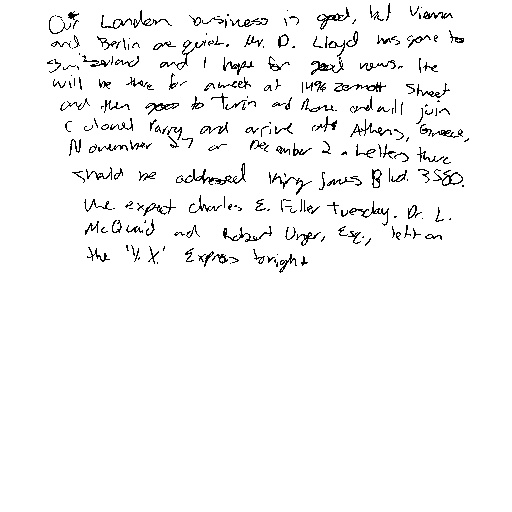 Our London business is good, but Vienna
and Berlin are quiet. Mr. D. Lloyd has gone to
Switzerland and I hope for good news. He
will be there for a week at 1496 Zermott Street
and then goes to Turin and Rome and will join
Colonel Parry and arrive at Athens, Greece,
November 27 or December 2. Letters there
should be addressed King James Blvd. 3580.
We expect Charles E. Fuller Tuesday. Dr. L.
McQuaid and Robert Unger, Esq., left on
the 'Y.X.' Express tonight